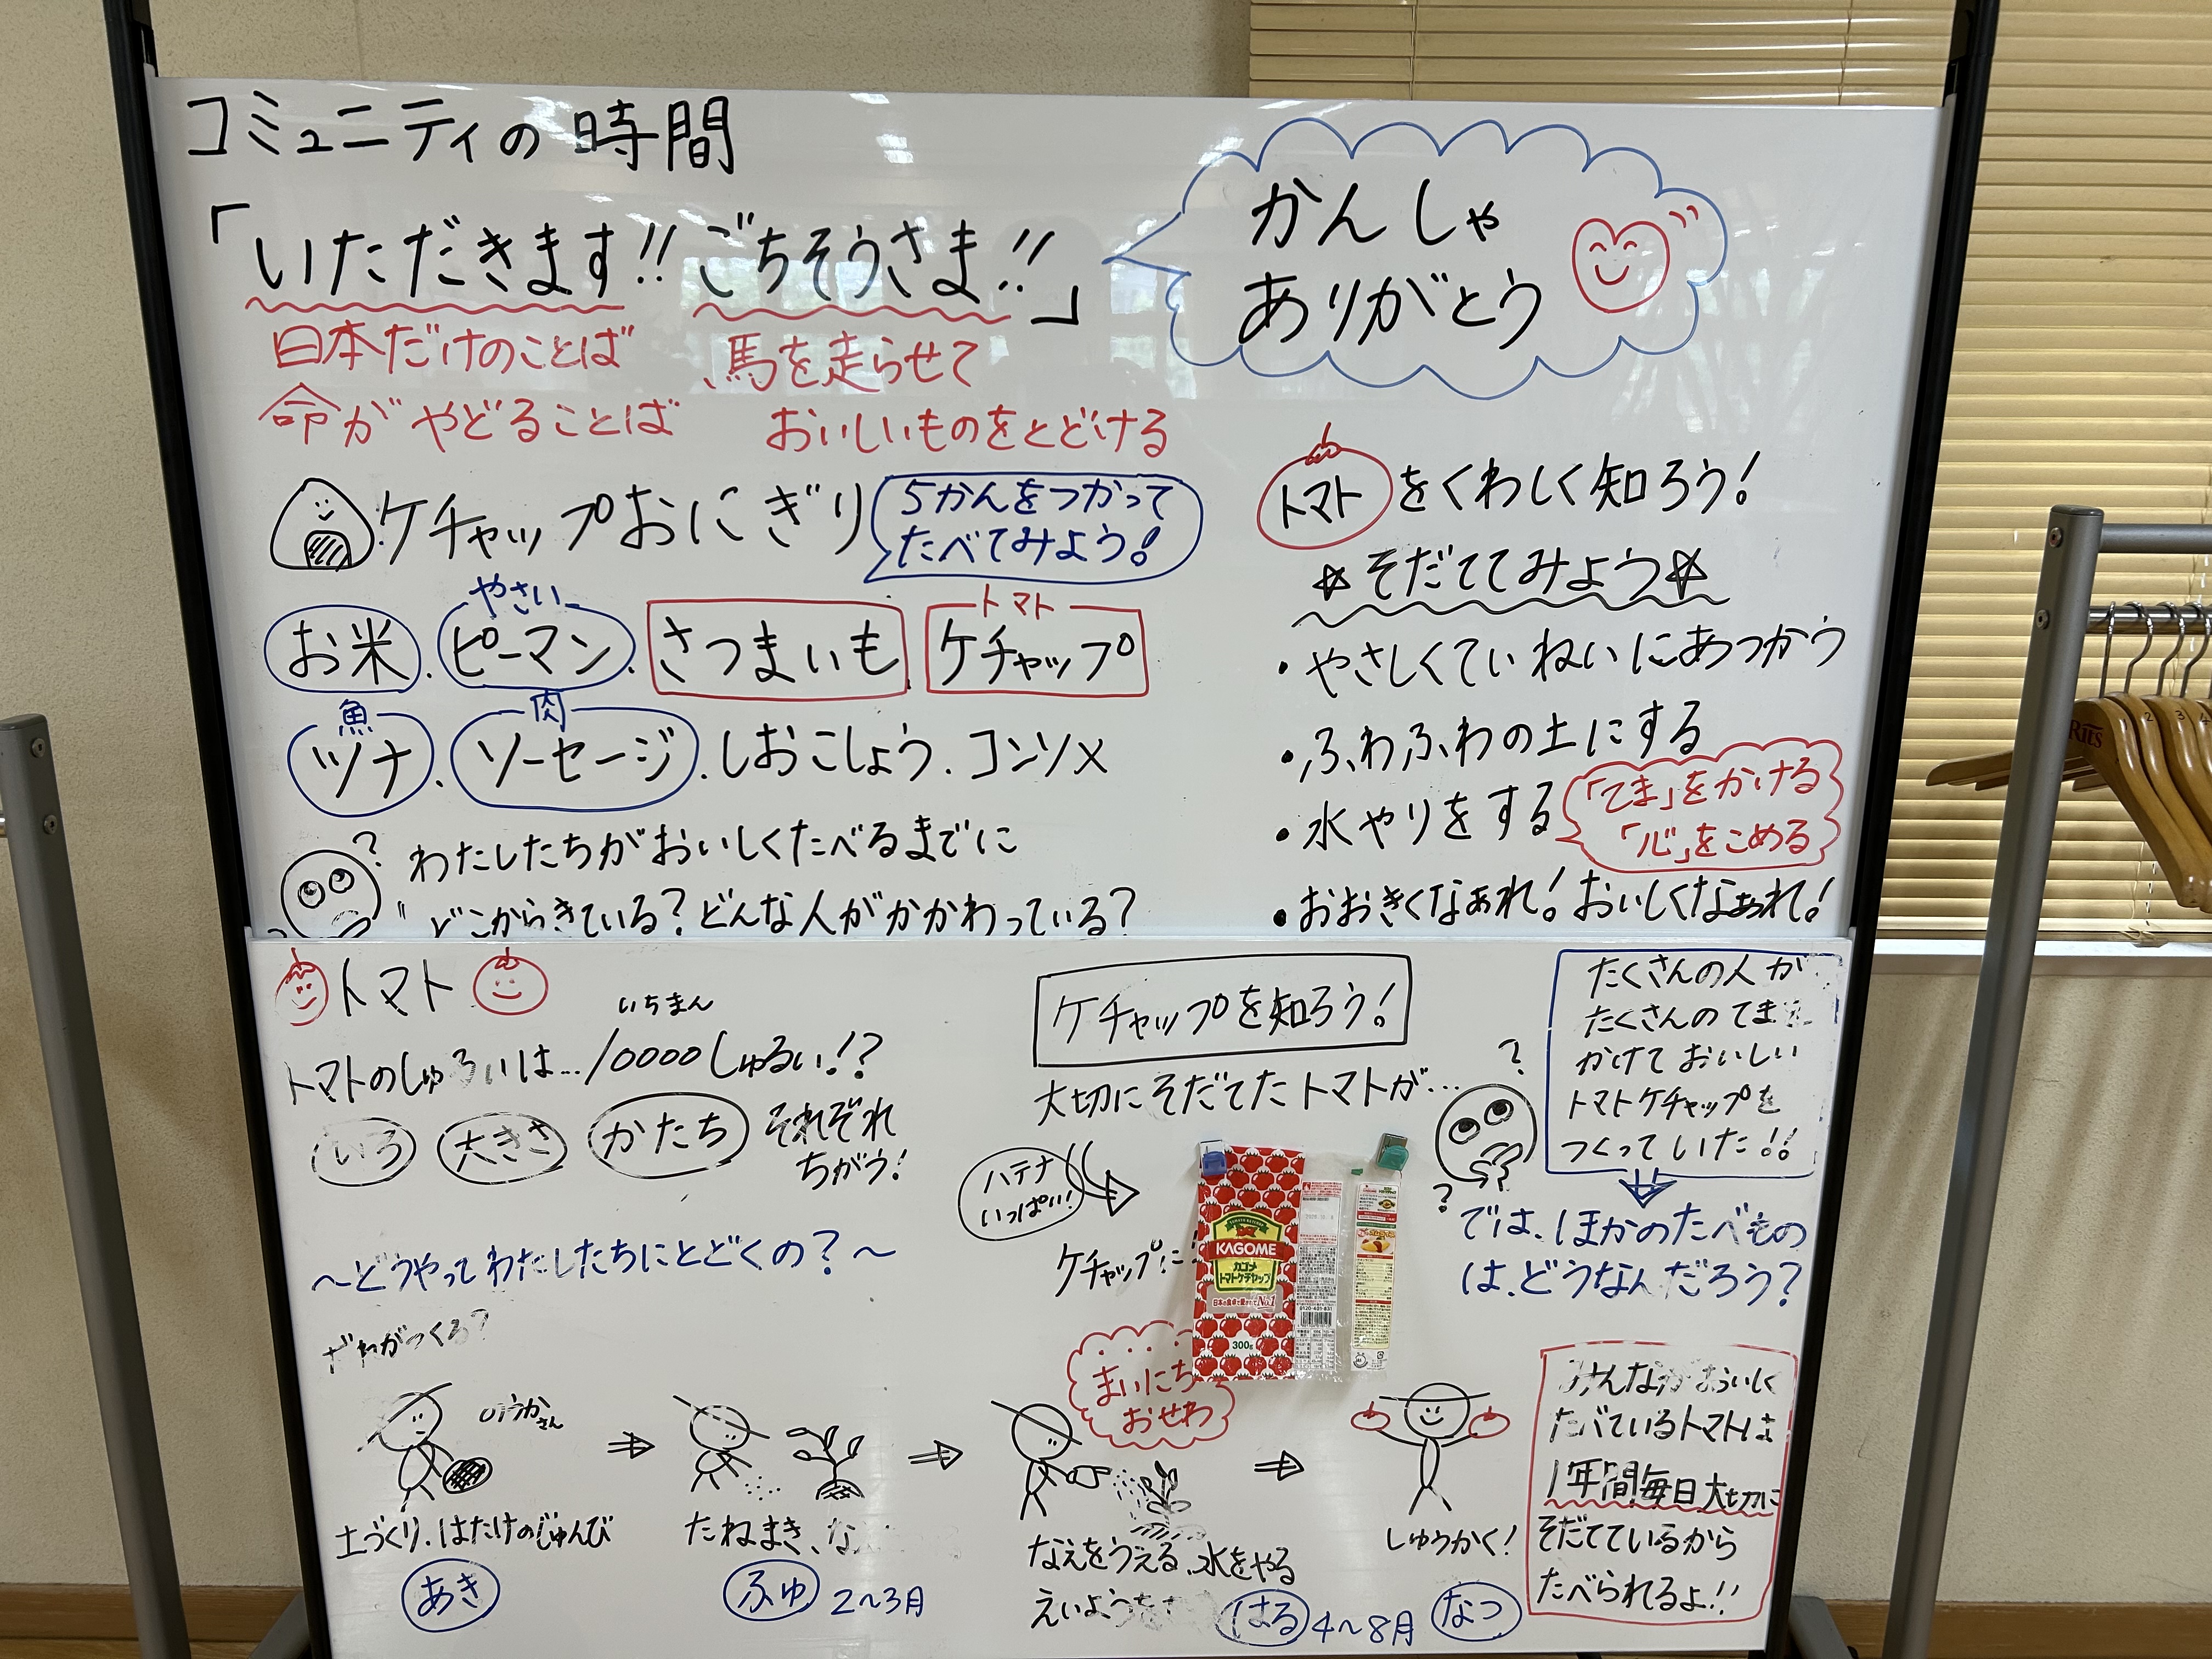 コミュニティの時間
「いただきます!! ごちそうさま!!」
かんしゃ
ありがとう
日本だけのことば
命がやどることば
馬を走らせて
おいしいものをとどける
ケチャップおにぎり
5かんをつかって
たべてみよう!
お米.
やさい
ピーマン.
さつまいも.
トマト
ケチャップ
魚
ツナ.
肉
ソーセージ.しおこしょう.コンソメ
?
わたしたちがおいしくたべるまでに
どこからきている?どんな人がかかわっている?
トマトをくわしく知ろう!
☆そだててみよう☆
・やさしくていねいにあつかう
・ふわふわの土にする
・水やりをする
「てま」をかける
「心」をこめる
・おおきくなぁれ!おいしくなぁれ!
トマト
いちまん
トマトのしゅるいは…10000しゅるい!?
いろ 大きさ かたち それぞれ
ちがう!
~どうやってわたしたちにとどくの?~
だれがつくる?
のうかさん
土づくり.はたけのじゅんび
あき
たねまき、
ふゆ 2~3月
まいにち
おせわ
なえをうえる.水をやる
えいよう
はる 4~8月 なつ
しゅうかく!
ケチャップを知ろう!
大切にそだてたトマトが…
ハテナ
いっぱい!
ケチャップに
KAGOME
カゴメ
トマトケチャップ
No.1
300g
0120-401-831
たくさんの人が
たくさんのてまを
かけておいしい
トマトケチャップを
つくっていた!!
?
?
では.ほかのたべもの
は.どうなんだろう?
みんながおいしく
たべているトマトは
1年間毎日大切に
そだてているから
たべられるよ!!